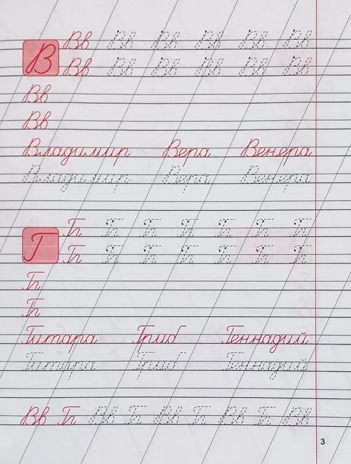 В
Вв Вв Вв Вв Вв Вв
Вв Вв Вв Вв Вв Вв
Вв
Вв
Владимир Вера Венера
Владимир Вера Венера
Г
Гг Гг Гг Гг Гг Гг Гг
Гг Гг Гг Гг Гг Гг Гг
Гг
Гг
Гитара Гриб Геннадий
Гитара Гриб Геннадий
Вв Гг Вв Гг Вв Гг Вв Гг Вв
3